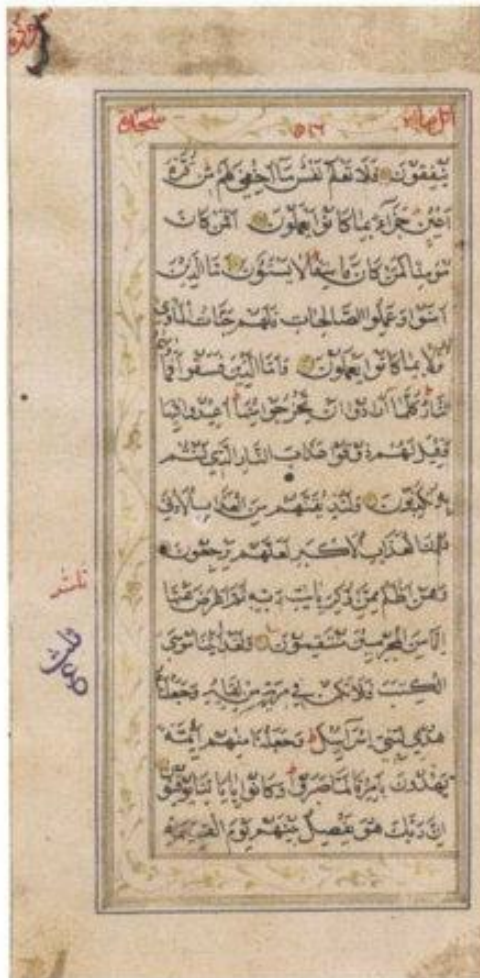 سجدة
ينفقون فلا تعلم نفس ما اخفي لهم من قرة
اعين جزاء بما كانوا يعملون افمن كان
مؤمنا كمن كان فاسقا لا يستون اما الذين
آمنوا وعملوا الصالحات فلهم جنات المأوى
نزلا بما كانوا يعملون واما الذين فسقوا
النار كلما ارادوا ان يخرجوا منها اعيدوا فيها
وقيل لهم ذوقوا عذاب النار الذي كنتم
به تكذبون ولنذيقنهم من العذاب الادنى
دون العذاب الاكبر لعلهم يرجعون
ومن اظلم ممن ذكر بايت ربه ثم اعرض عنها
انا من المجرمين منتقمون ولقد آتينا موسى
الكتب فلا تكن في مرية من لقائه وجعلناه
هدى لبني اسرائيل وجعلنا منهم ائمة
يهدون بامرنا لما صبروا وكانوا باياتنا يوقنون
ان ربك هو يفصل بينهم يوم القيمة